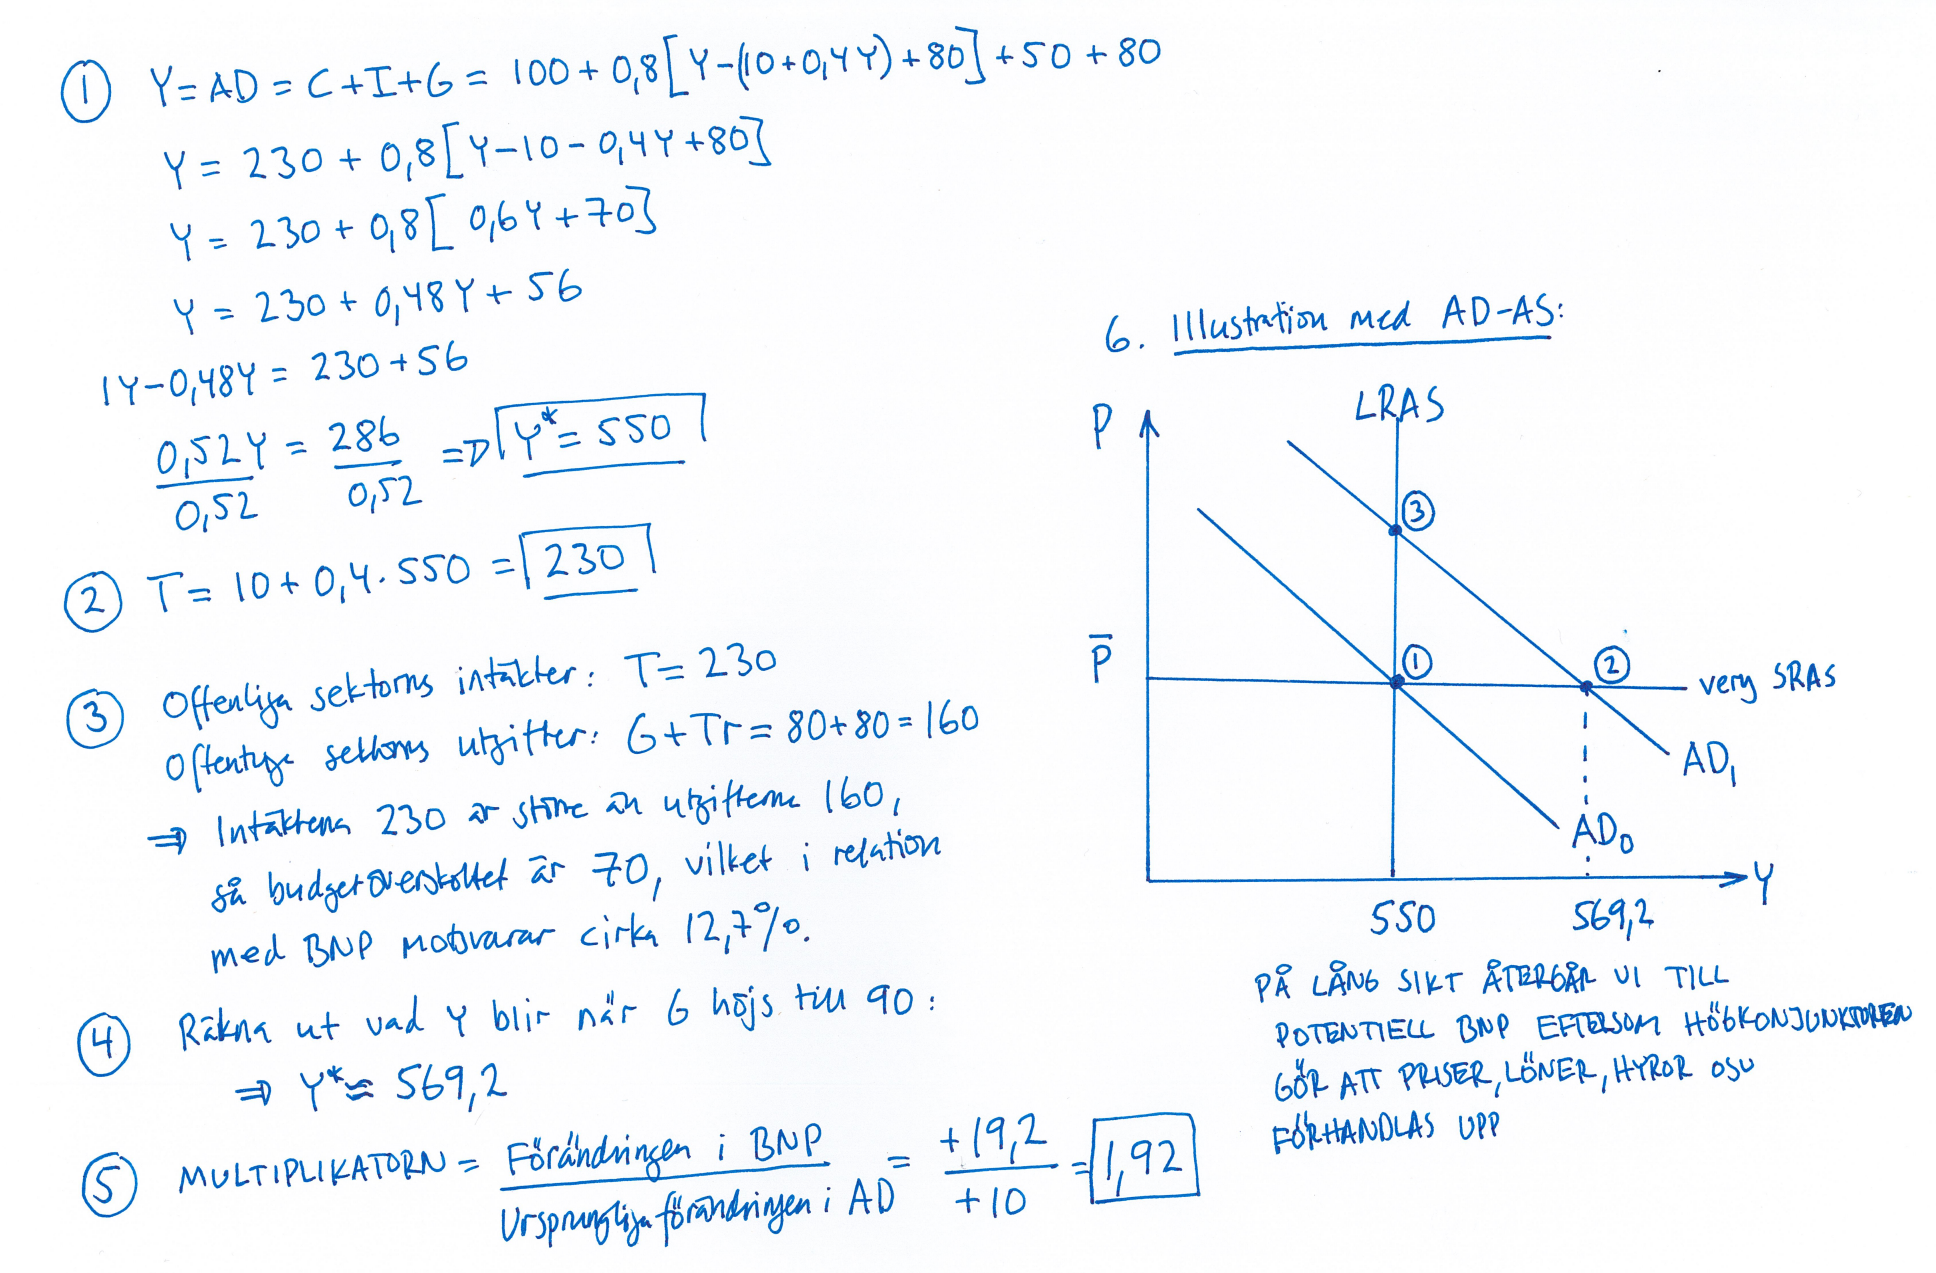 ① Y=AD = C+I+G = 100+0,8[Y-(10+0,4Y)+80]+50+80
Y = 230 + 0,8[Y-10-0,4Y+80]
Y = 230 + 0,8[0,6Y+70]
Y = 230 + 0,48Y + 56
1Y-0,48Y = 230+56
0,52Y = 286 => Y* = 550
0,52 0,52
② T = 10 + 0,4·550 = 230
③ Offentliga sektorns intäkter: T = 230
Offentliga sektorns utgifter: G+Tr = 80+80 = 160
⇒ Intäkterna 230 är större än utgifterna 160,
så budgetöverskottet är 70, vilket i relation
med BNP motsvarar cirka 12,7%.
④ Räkna ut vad Y blir när G höjs till 90:
⇒ Y* ≈ 569,2
⑤ MULTIPLIKATORN = Förändringen i BNP = +19,2 = 1,92
Ursprungliga förändringen i AD +10
6. Illustration med AD-AS:
P
LRAS
③
P̄
①
②
very SRAS
AD₁
AD₀
Y
550
569,2
PÅ LÅNG SIKT ÅTERGÅR VI TILL
POTENTIELL BNP EFTERSOM HÖGKONJUNKTUREN
GÖR ATT PRISER, LÖNER, HYROR OSV
FÖRHANDLAS UPP